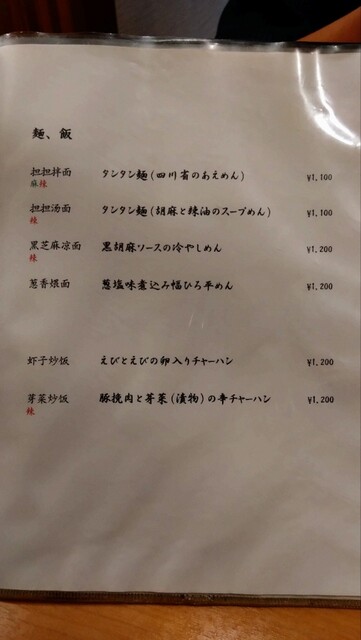 麺、飯
担担拌面 タンタン麺(四川省のあえめん) ¥1,100
麻辣
担担汤面 タンタン麺(胡麻と辣油のスープめん) ¥1,100
辣
黑芝麻凉面 黒胡麻ソースの冷やしめん ¥1,200
辣
葱香煨面 葱塩味煮込み幅ひろ平めん ¥1,200
虾子炒饭 えびとえびの卵入りチャーハン ¥1,200
芽菜炒饭 豚挽肉と芽菜(漬物)の辛チャーハン ¥1,200
辣